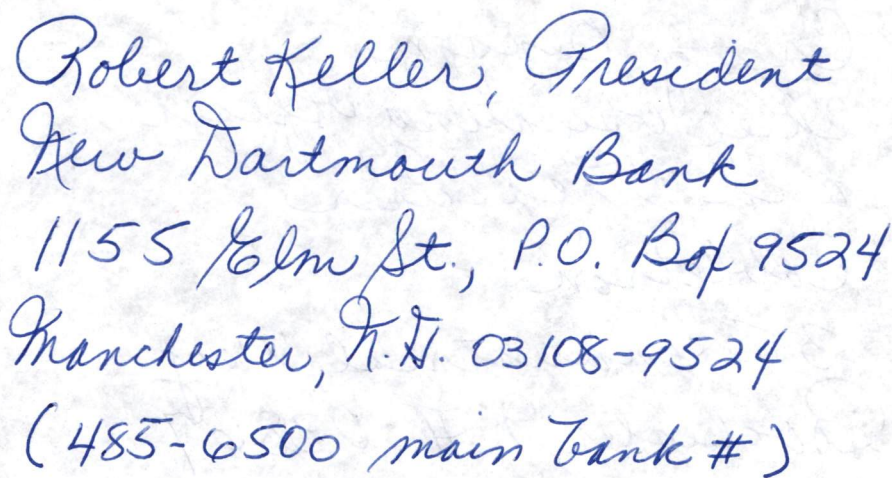 Robert Keller, President
New Dartmouth Bank
1155 Elm St., P.O. Box 9524
Manchester, N.H. 03108-9524
(485-6500 main bank #)